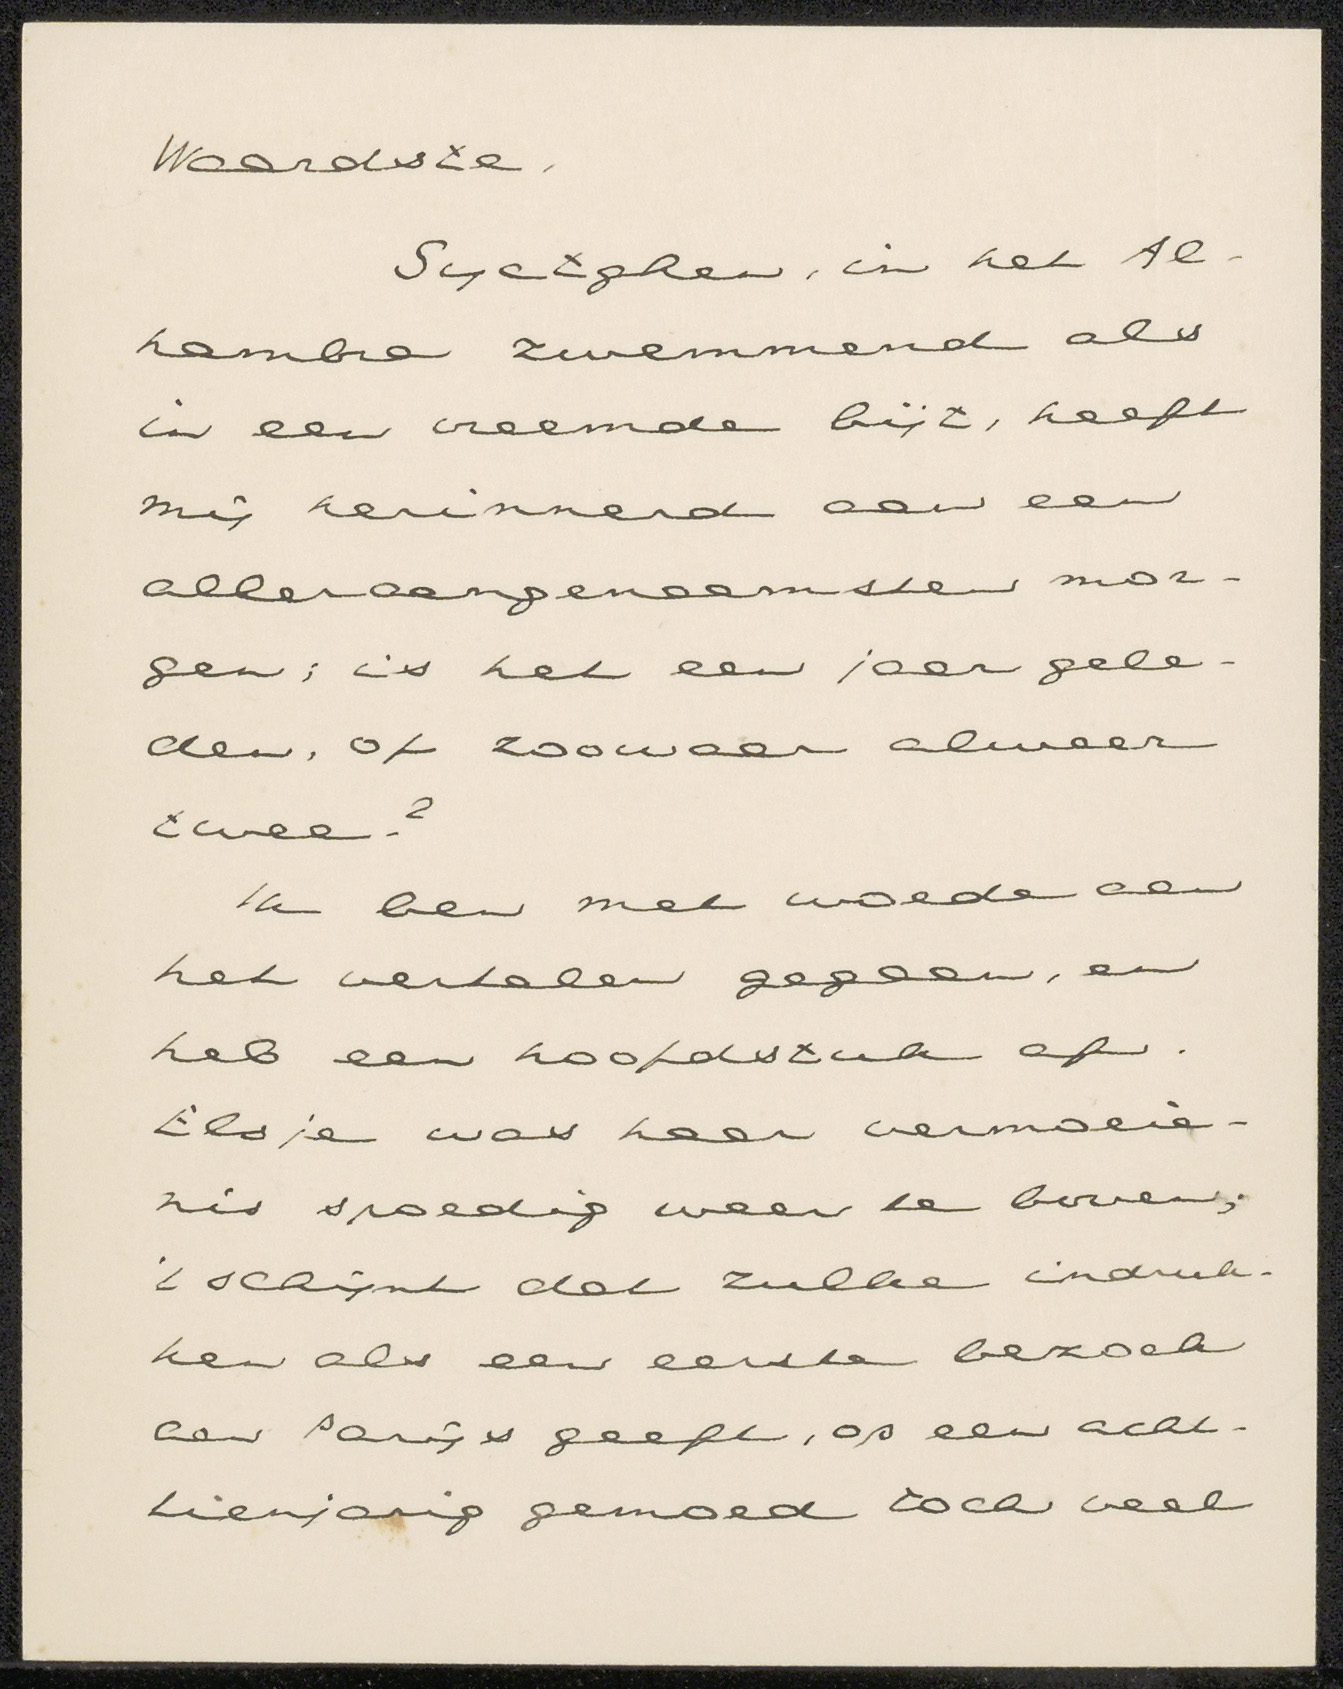 Waardste,
Suctghen, in het Al-
hambra zwemmend als
in een vreemde bijt, heeft
mij herinnerd aan een
alleraangenaamsten mor-
gen; is het een jaar gele-
den, of zoowaar alweer
twee.?
Ik ben met woede aan
het vertalen gegaan, en
heb een hoofdstuk af.
Elsje was haar vermoeie-
nis spoedig weer te boven;
't schijnt dat zulke indruk-
ken als een eerste bezoek
aan Parijs geeft, op een acht-
tienjarig gemoed toch veel